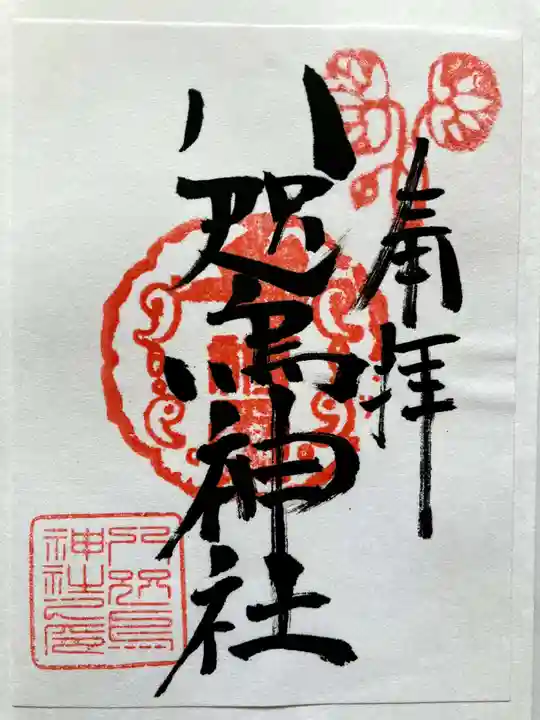 奉拝
八咫烏神社
八咫烏
神社之印